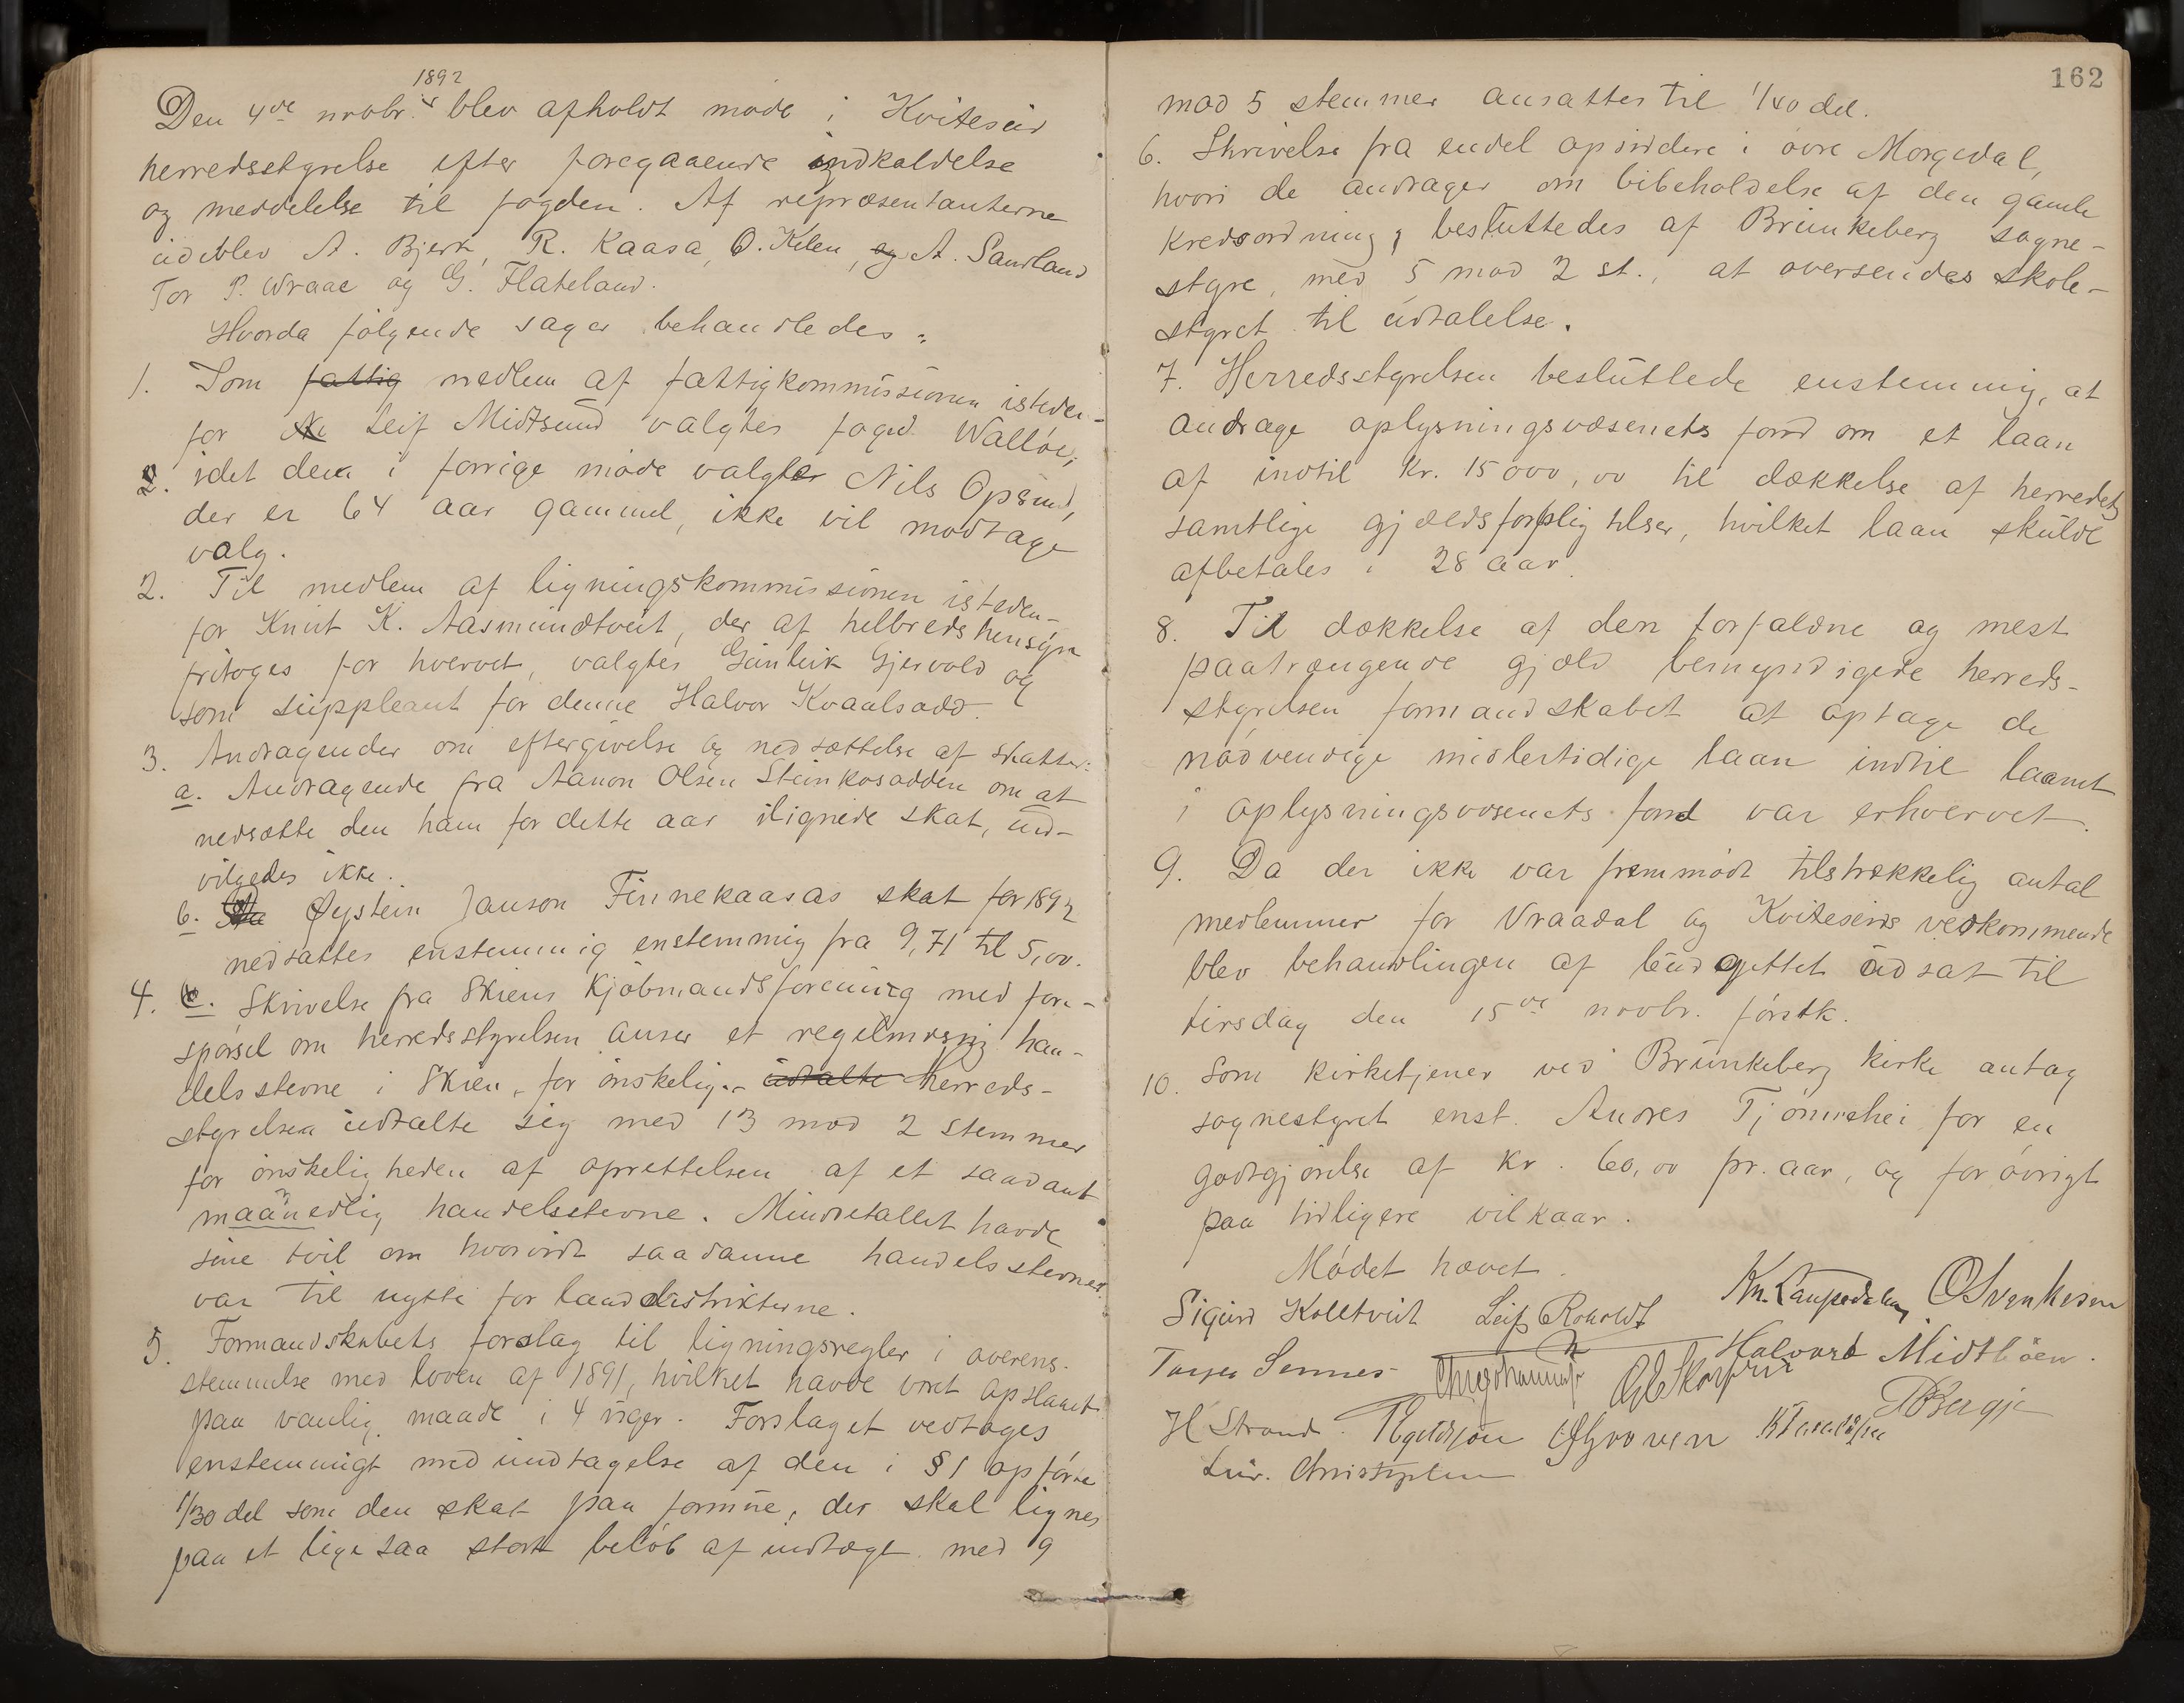 1892
Den 4de novbr. blev afholdt møde i Kviteseid
herredsstyrelse efter foregaaende indkaldelse
og meddelelse til fogden. Af repræsentanterne
udeblev A. Bjerk, R. Kaasa, O. Kilen, og A. Sandland
Tor P. Wraae og G. Flateland.
Hvorda følgende sager behandledes:
1. Som fattig medlem af fattigkommissionen isteden-
for Leif Midtsund valgtes foged Walløe,
idet den i forrige møde valgte Nils Opsund,
der er 64 aar gammel, ikke vil modtage
valg.
2. Til medlem af ligningskommissionen isteden-
for Knut K. Aasmundtveit, der af helbredshensyn
fritoges for hvervet, valgtes Gunleik Gjervold og
som suppleant for denne Halvor Kvaalsodd.
3. Andragender om eftergivelse og nedsættelse af skatter:
a. Andragende fra Aanon Olsen Steinkosodden om at
nedsætte den ham for dette aar ilignede skat, ind-
vilgedes ikke.
b. Øystein Janson Finnekaasas skat for 1892
nedsattes enstemmig enstemmig fra 9,71 til 5,00.
4. Skrivelse fra Skiens Kjøbmandsforening med fore-
spørsel om herredsstyrelsen anser et regelmæssig han-
delsstevne i Skien for ønskelig. udtalte Herreds-
styrelsen udtalte sig med 13 mod 2 stemmer
for ønskeligheden af oprettelsen af et saadant
maanedlig handelsstevne. Mindretallet havde
sine tvil om hvorvidt saadanne handelsstevner
var til nytte for landdistrikterne.
5. Formandskabets forslag til ligningsregler i overens-
stemmelse med loven af 1891, hvilket havde vært opslaaet
paa vanlig maade i 4 uger. Forslaget vedtoges
enstemmigt med undtagelse af den i § 1 opførte
1/30 del som den skat paa formue, der skal lignes
paa et lige saa stort beløb af indtægt med 9
162
mod 5 stemmer ansattes til 1/40 del.
6. Skrivelse fra endel opsiddere i øvre Morgedal,
hvori de andrager om bibeholdelse af den gamle
kredsordning, besluttedes af Brunkeberg sogne-
styre, med 5 mod 2 st., at oversendes skole-
styret til udtalelse.
7. Herredsstyrelsen besluttede enstemmig, at
andrage oplysningsvæsenets fond om et laan
af indtil Kr. 15000,00 til dækkelse af herredets
samtlige gjældsforpligtelser, hvilket laan skulde
afbetales i 28 aar.
8. Til dækkelse af den forfaldne og mest
paatrængende gjæld bemyndigede herreds-
styrelsen formandskabet at optage de
nødvendige midlertidige laan indtil laanet
i oplysningsvæsenets fond var erhvervet.
9. Da der ikke var fremmødt tilstrækkelig antal
medlemmer for Vraadal og Kviteseids vedkommende
blev behandlingen af budgettet udsat til
tirsdag den 15de novbr. førstk.
10. Som kirketjener ved Brunkeberg kirke antog
sognestyret enst. Andres Tjønnshei for en
godtgjørelse af Kr. 60,00 pr. aar, og forøvrigt
paa tidligere vilkaar.
Mødet hævet.
Sigurd Kolltveit Leif Roholdt
Halvard Midtbøen.
H Strand